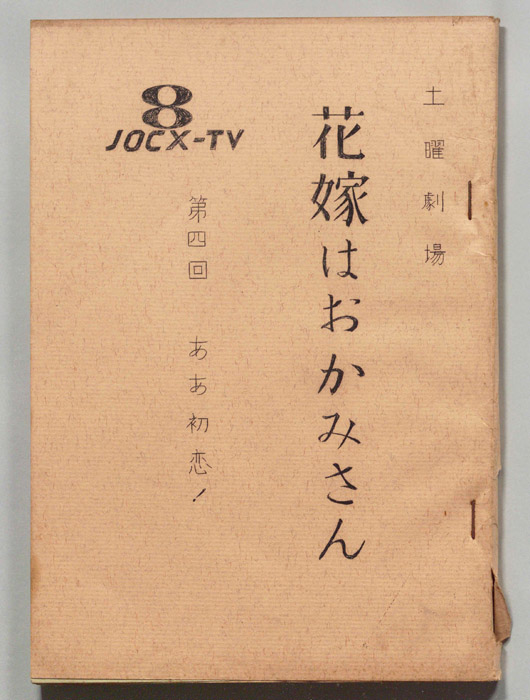 土曜劇場
花嫁はおかみさん
8
JOCX-TV
第四回 ああ初恋!